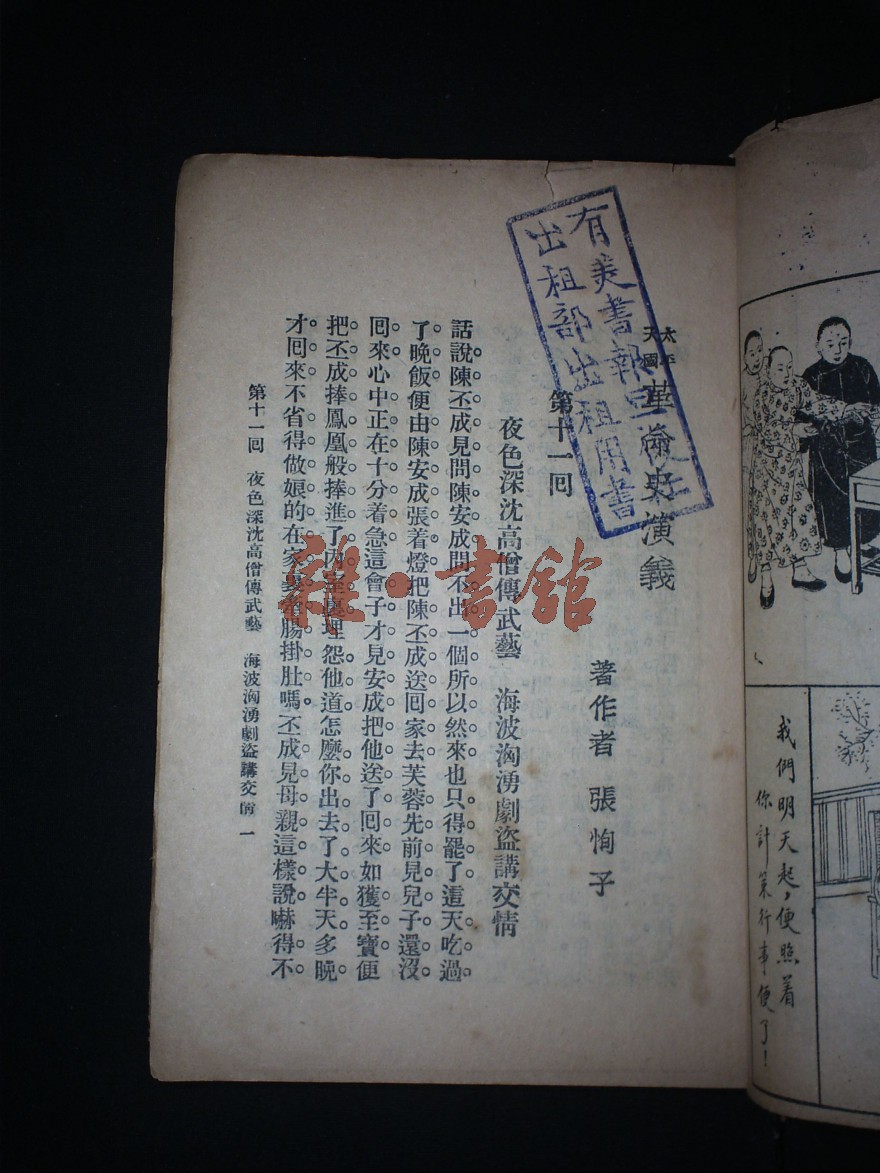 我們明天起，便照着
你計策行事便了！
太平
天國
革命史演義
著作者 張恂子
第十一回
夜色深沈高僧傳武藝 海波洶湧劇盜講交情
話說陳丕成見問陳安成問不出一個所以然來也只得罷了這天吃過
了晚飯便由陳安成張着燈把陳丕成送回家去芙蓉先前見兒子還沒
回來心中正在十分着急這會子才見安成把他送了回來如獲至寶便
把丕成捧鳳凰般捧進了內室裏埋怨他道怎麼你出去了大半天多晚
才回來不省得做娘的在家裏牽腸掛肚嗎丕成見母親這樣說嚇得不
第十一回 夜色深沈高僧傳武藝 海波洶湧劇盜講交情 一
有美書報
出租部出租用書
雜·書館